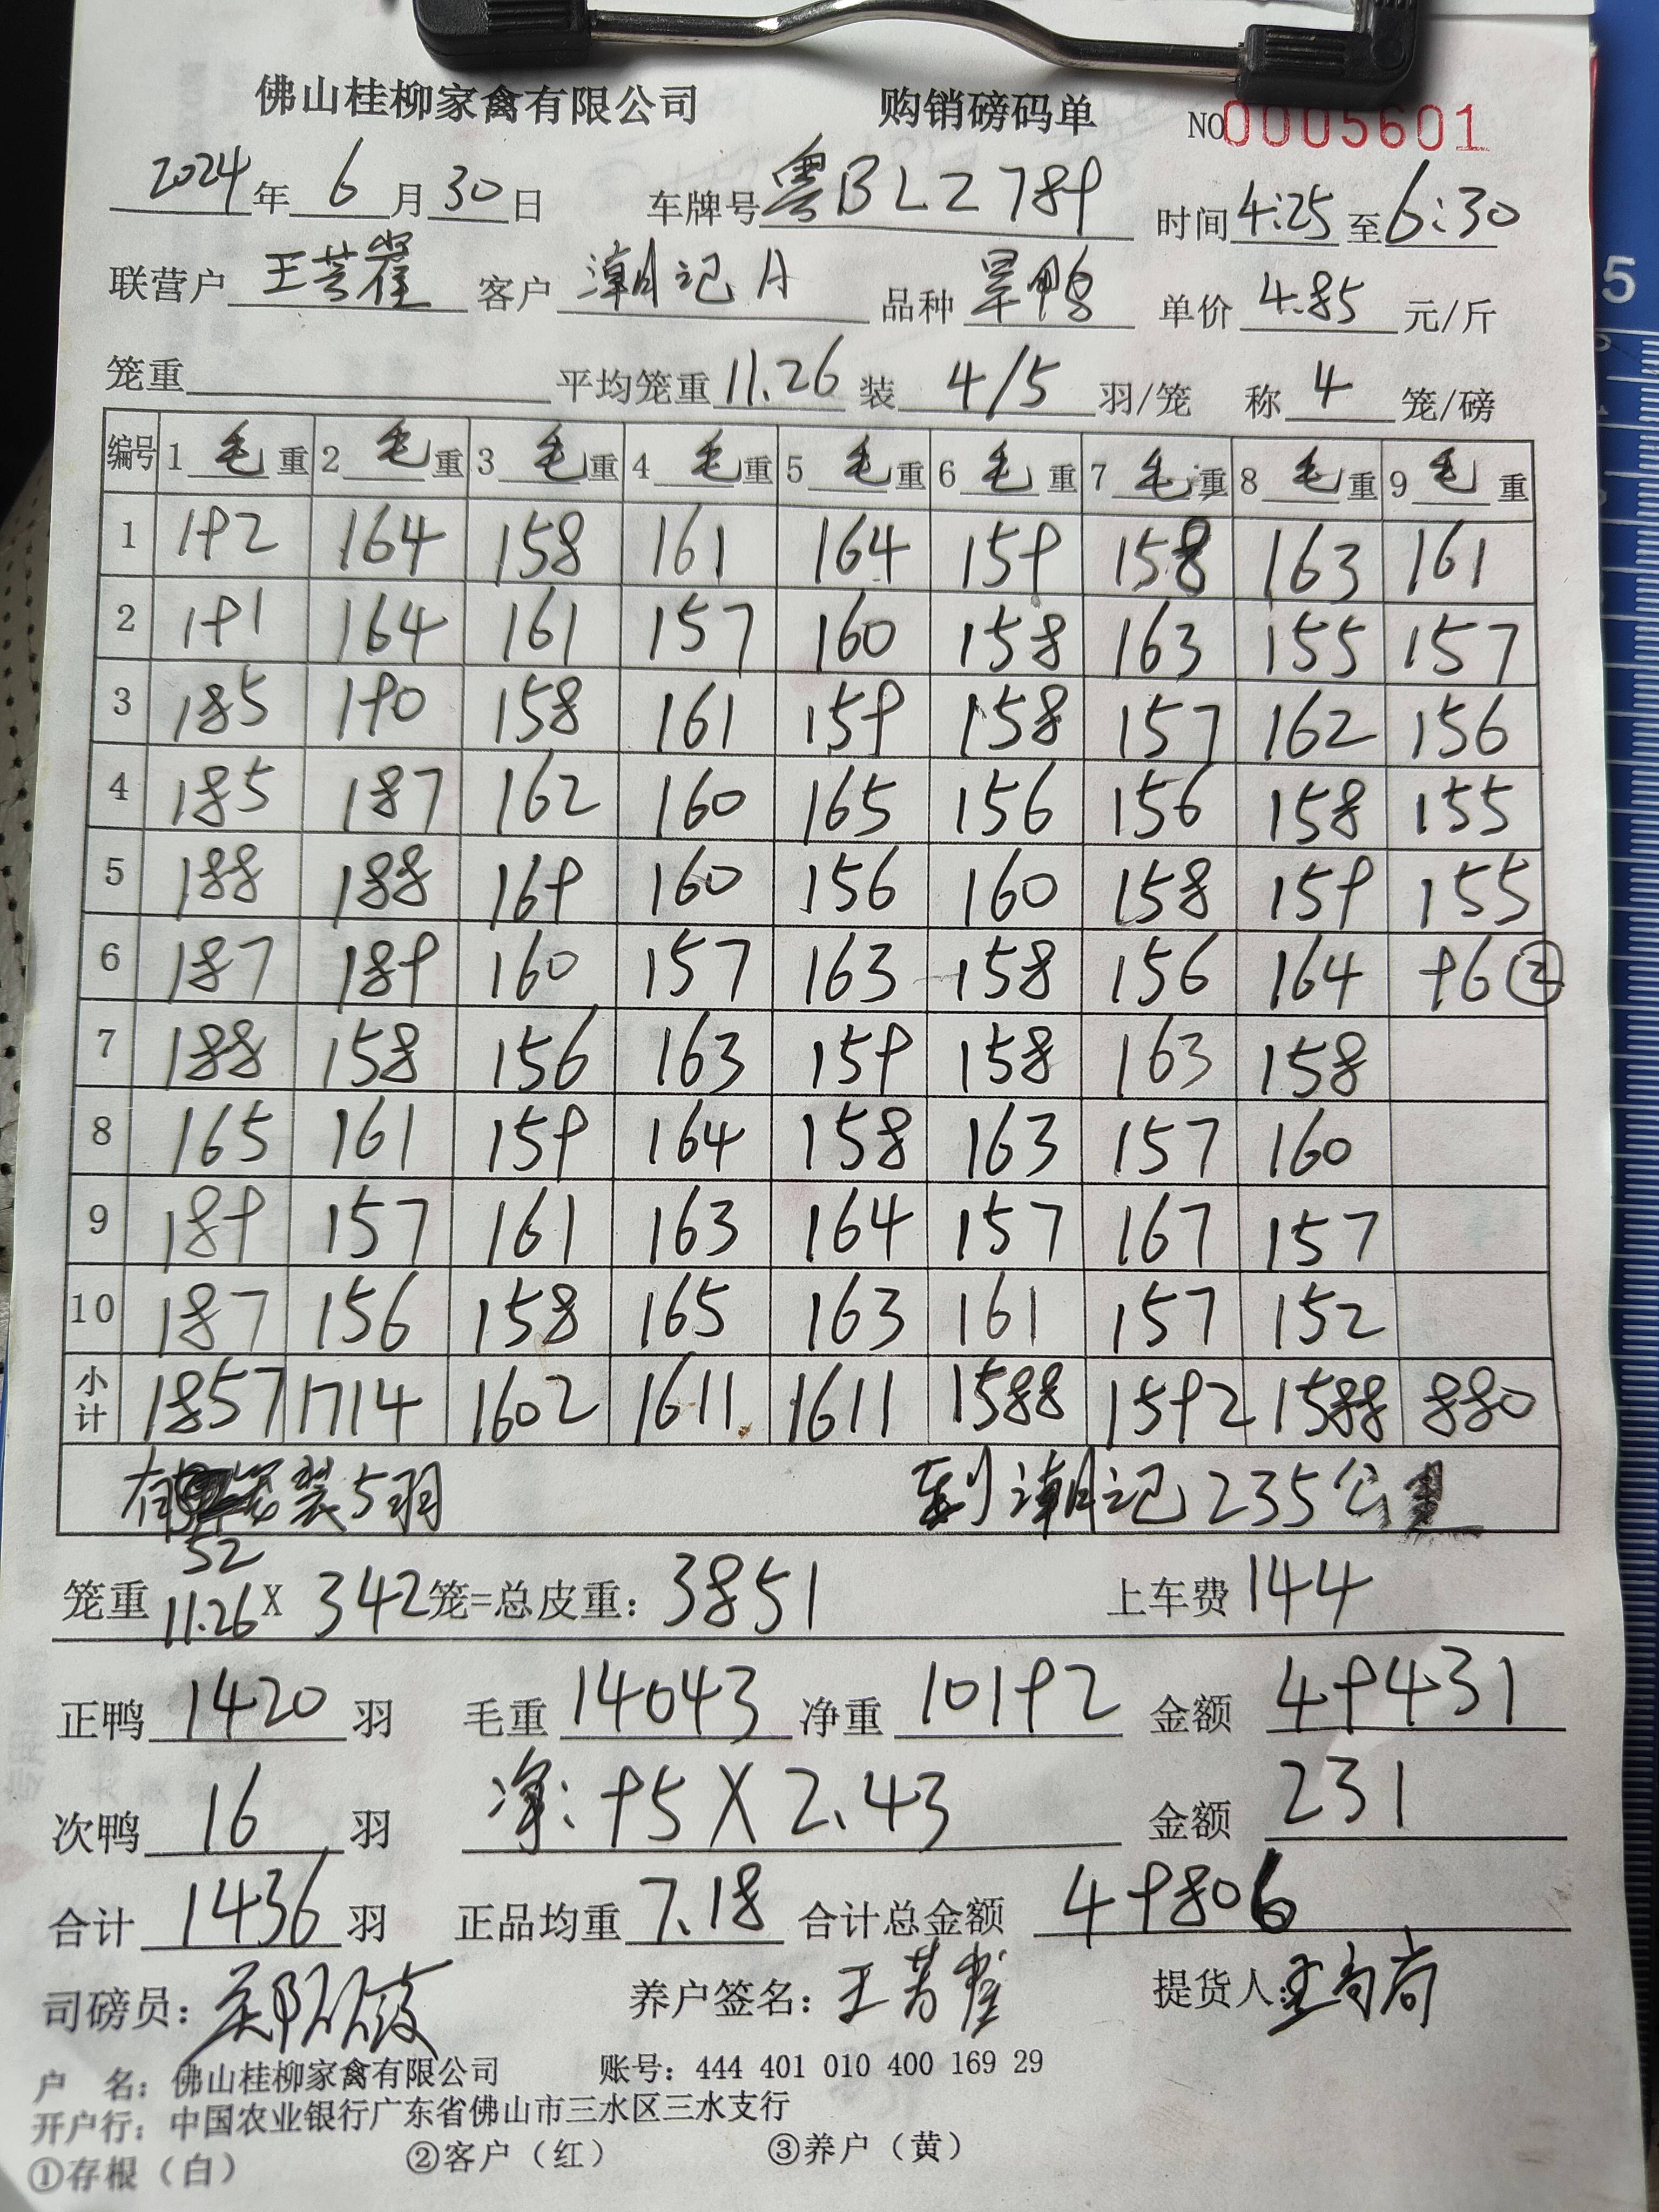 佛山桂柳家禽有限公司 购销磅码单 NO0005601
2024年6月30日 车牌号粤BLZ789 时间4:25至6:30
联营户 王芳 客户 潮记A 品种 旱鸭 单价 4.85 元/斤
笼重 平均笼重11.26 装 4/5 羽/笼 称 4 笼/磅
编号 1毛重 2毛重 3毛重 4毛重 5毛重 6毛重 7毛重 8毛重 9毛重
1 192 164 158 161 164 159 158 163 161
2 191 164 161 157 160 158 163 155 157
3 185 190 158 161 159 158 157 162 156
4 185 187 162 160 165 156 156 158 155
5 188 188 169 160 156 160 158 159 155
6 187 189 160 157 163 158 156 164 96②
7 188 158 156 163 159 158 163 158
8 165 161 159 164 158 163 157 160
9 189 157 161 163 164 157 167 157
10 187 156 158 165 163 161 157 152
小计 1857 1714 1602 1611 1611 1588 1592 1588 880
有 笼装5羽 到潮记235公里
52
笼重 11.26 X 342笼=总皮重：3851 上车费 144
正鸭 1420 羽 毛重 14043 净重 10192 金额 49431
次鸭 16 羽 净：95X2.43 金额 231
合计 1436 羽 正品均重 7.18 合计总金额 49806
司磅员： 养户签名：王芳 提货人：
户 名：佛山桂柳家禽有限公司 账号：444 401 010 400 169 29
开户行：中国农业银行广东省佛山市三水区三水支行
①存根（白） ②客户（红） ③养户（黄）
5